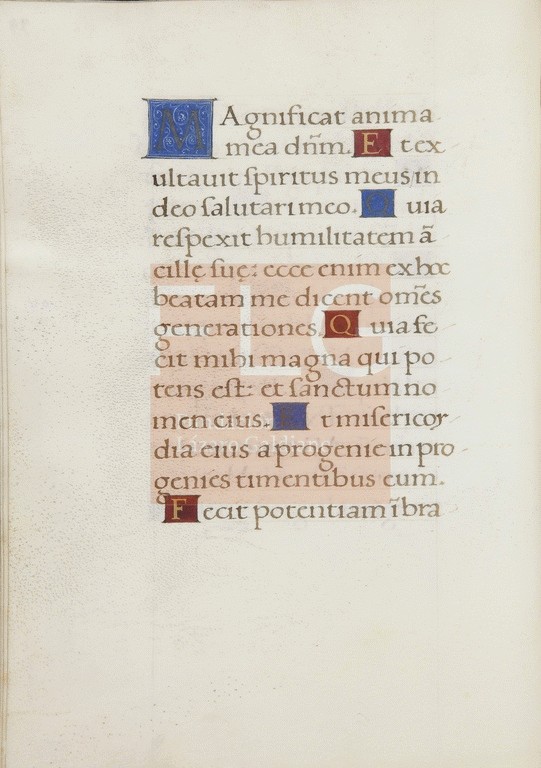 MAgnificat anima
mea dñm. Et ex
ultauit ſpiritus meus in
deo ſalutari meo. Quia
reſpexit humilitatem ã
cillę ſuę: ecce enim ex hoc
beatam me dicent om̃es
generationes. Quia fe
cit mihi magna qui po
tens est: et ſanctum no
men eius. Et miſericor
dia eius a progenie in pro
genies timentibus eum.
Fecit potentiam ĩ bra
FLG
Lázaro Galdiano